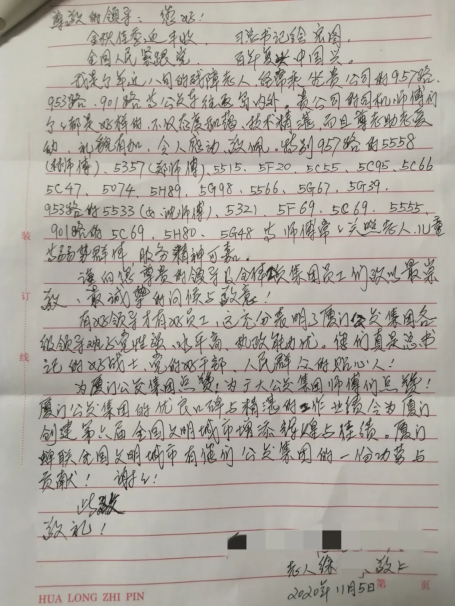 尊敬的领导：您好！
全球任意迎丰收，习总书记绘宏图，
全国人民紧跟党，百年复兴中国兴。
我是个年近八旬的残障老人，经常乘坐贵公司的957路、
953路、901路等公交车往返岛内外。贵公司的司机师傅们
个个都是好样的，不仅态度和蔼，技术精湛，而且尊老助老爱
幼，礼貌有加，令人感动、敬佩。特别957路的5558
(师傅)、5357(郑师傅)、5515、5F20、5C55、5C95、5C66
5C47、5074、5H89、5G98、5566、5G67、5G39、
953路的5533(师傅)、5321、5F69、5C69、5555、
901路的5C69、5H80、5G48等师傅关照老人、儿童
等弱势群体，服务精神可嘉。
谨向您尊贵的领导及全体公交集团员工们致以最崇
敬、最诚挚的问候与敬意！
有好领导才有好员工，这充分表明了厦门公交集团各
级领导班子党性强、水平高、执政能力优，他们真是总书
记的好战士，党的好干部，人民群众的贴心人！
为厦门公交集团点赞！为广大公交集团师傅们点赞！
厦门公交集团的优良口碑与精湛的工作业绩会为厦门
创建第六届全国文明城市增添辉煌与佳绩。厦门
蝉联全国文明城市有他们公交集团的一份功劳与
贡献！谢谢！
此致
敬礼！
老人 敬上
2020年11月5日
装
订
线
HUA LONG ZHI PIN
第 页